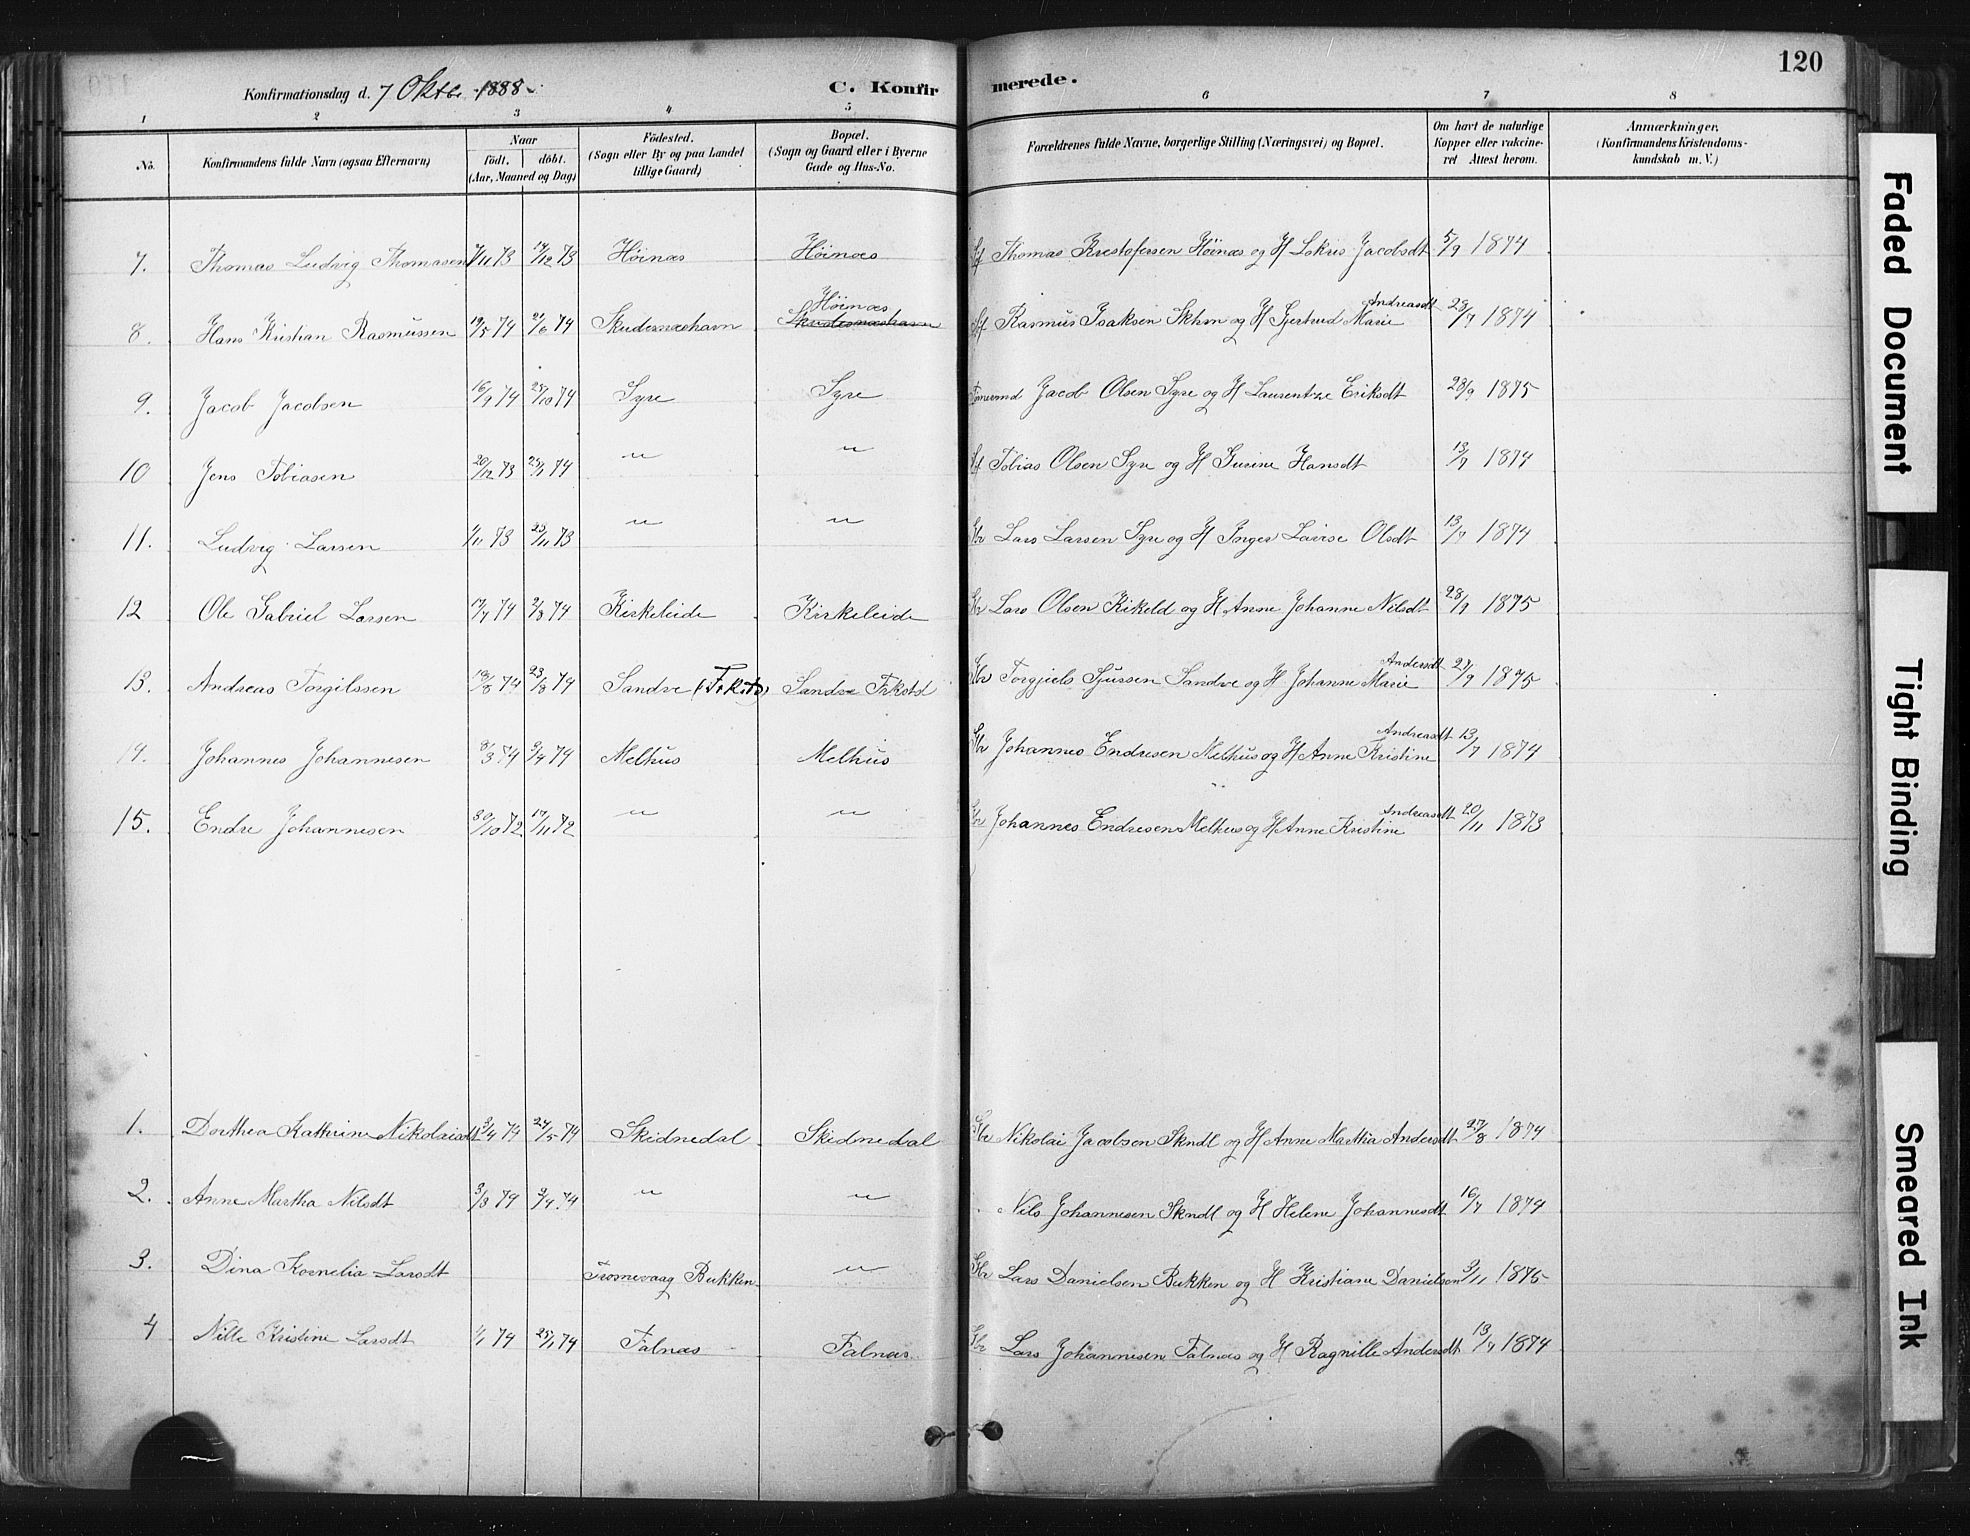 120
Konfirmationsdag d. 7 Oktbr 1888. C. Konfirmerede.
1 2 3 4 5 6 7 8
No. Konfirmandens fulde Navn (ogsaa Efternavn) Naar födt. döbt. (Aar, Maaned og Dag) Födested. (Sogn eller By og paa Landet tillige Gaard) Bopæl. (Sogn og Gaard eller i Byerne Gade og Hus-No. Forældrenes fulde Navne, borgerlige Stilling (Næringsvei) og Bopæl. Om havt de naturlige Kopper eller vakcineret Attest herom. Anmærkninger. (Konfirmandens Kristendomskundskab m. V.)
7. Thomas Ludvig Thomasen 73 14/12 73 Höinæs Höinæs Thomas Krestofersen Höinæs og H Jacobsdt 5/9 1874
8. Hans Kristian Rasmussen 19/5 74 21/6 74 Skudesnæshavn Höinæs Skudesnæshavn Rasmus Isaksen Skhvn og H Gjertrud Marie Andreasdt 23/7 1874
9. Jacob Jacobsen 16/9 74 25/10 74 Syre Syre Jacob Olsen Syre og H Laurentze Eriksdt 28/9 1875
10 Jens Tobiasen 20/12 73 25/1 74 " " Tobias Olsen Syre og H Gurine Hansdt 13/7 1874
11. Ludvig Larsen 1/11 73 23/11 73 " " Gbr Lars Larsen Syre og H Inger Lovise Olsdt 13/7 1874
12 Ole Gabriel Larsen 17/7 74 2/8 74 Kirkeleide Kirkeleide Gbr Lars Olsen Kikeld og H Anne Johanne Nilsdt 28/9 1875
13. Andreas Torgilssen 13/8 74 23/8 74 Sandve (Frkstd) Sandve Frkstd Gbr Torgjiels Sjursen Sandve og H Johanne Marie Andersdt 27/9 1875
14. Johannes Johannesen 8/3 74 3/4 74 Melhus Melhus Gbr Johannes Endresen Melhus og H Anne Kristine Andreasdt 13/7 1874
15. Endre Johannesen 30/10 72 17/11 72 " " Gbr Johannes Endresen Melhus og H Anne Kristine Andreasdt 20/11 1873
1. Dorthea Kathrine Nikolaisdt 3/4 74 24/5 74 Skidnedal Skidnedal Gbr Nikolai Jacobsen Skndl og H Anne Martha Andersdt 27/8 1874
2. Anne Martha Nilsdt 3/3 74 3/4 74 " " Nils Johannesen Skndl og H Helene Johannesdt 16/7 1874
3. Dina Kornelia Larsdt Tromevaag Bukken " Gbr Lars Danielsen Bukken og H Kristiane Danielsen 3/11 1875
4 Nille Kristine Larsdt 1/1 74 25/1 74 Falnæs Falnæs Gbr Lars Johannesen Falnæs og H Ragnille Andersdt 13/7 1874
Faded Document
Tight Binding
Smeared Ink